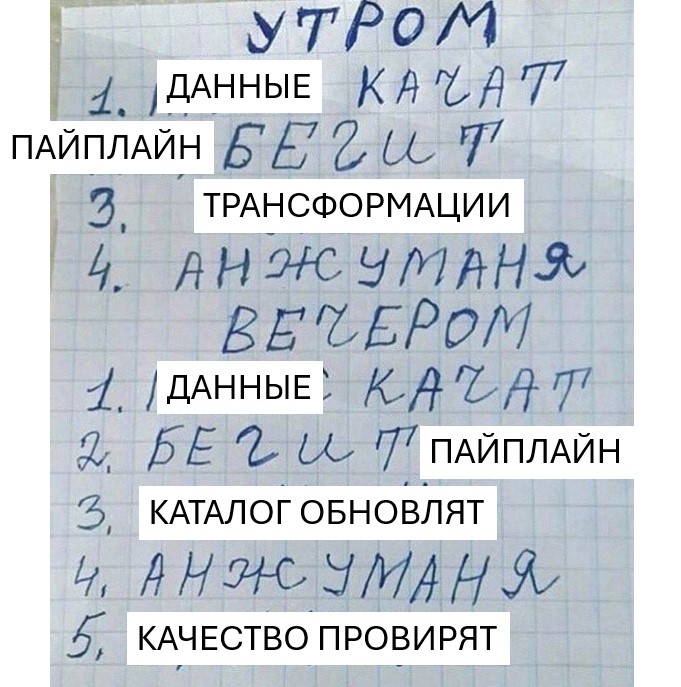 УТРОМ
1. ДАННЫЕ КАЧАТ
ПАЙПЛАЙН БЕГИТ
3. ТРАНСФОРМАЦИИ
4. АНЖУМАНЯ
ВЕЧЕРОМ
1. ДАННЫЕ КАЧАТ
2. БЕГИТ ПАЙПЛАЙН
3. КАТАЛОГ ОБНОВЛЯТ
4. АНЖУМАНЯ
5. КАЧЕСТВО ПРОВИРЯТ